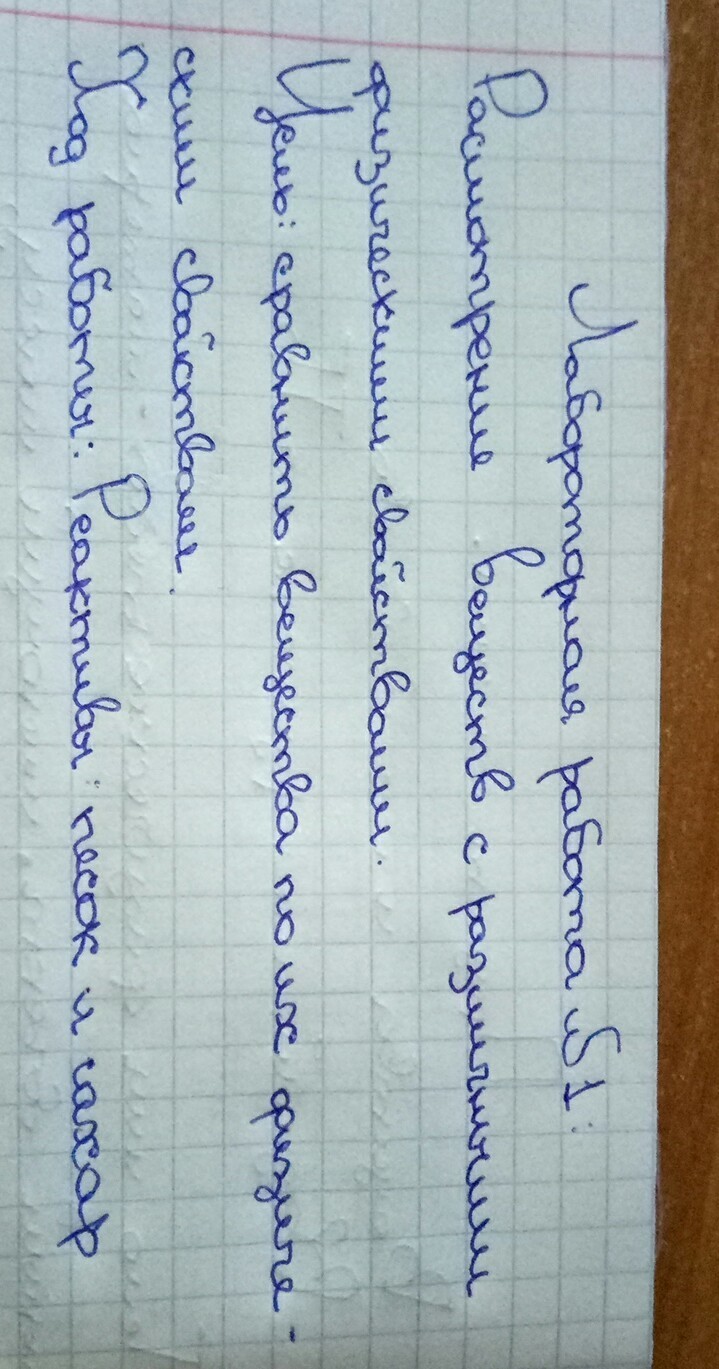 Лабораторная работа №1:
Расмотрение веществ с различными
физическими свойствами.
Цель: сравнить вещества по их физиче-
ским свойствам.
Ход работы: Реактивы: песок и сахар